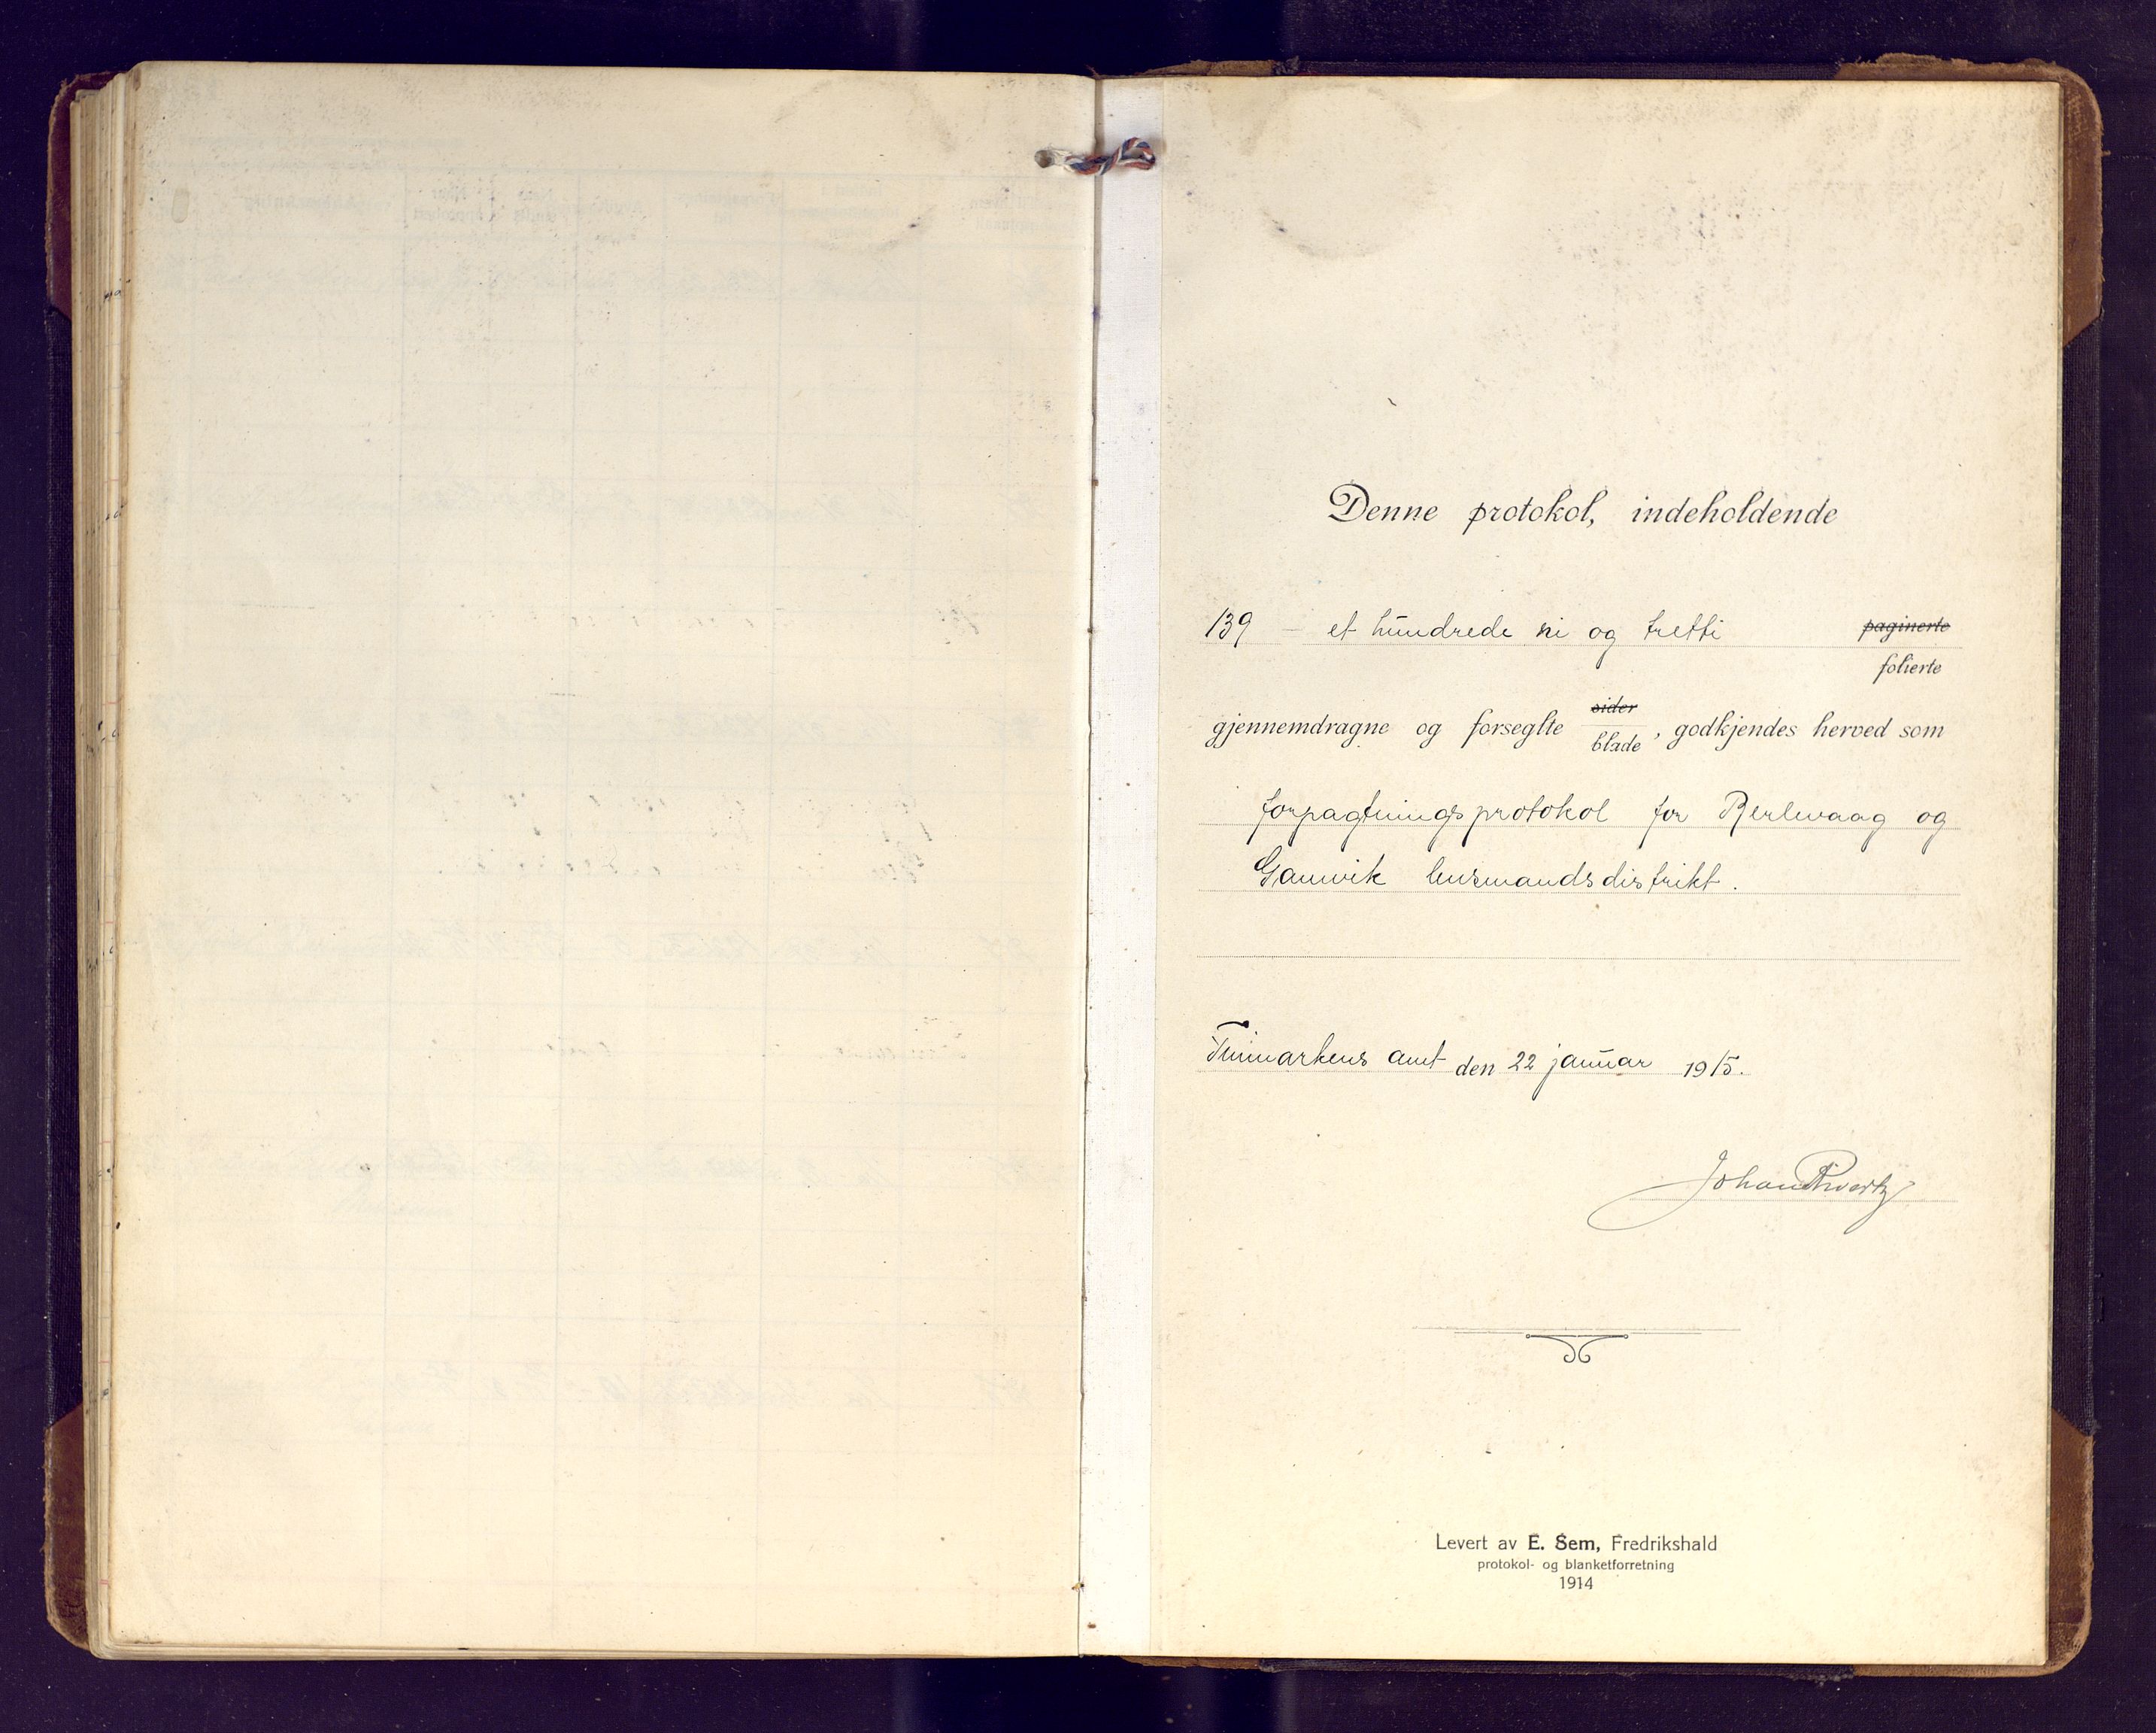 Denne protokol, indeholdende
139 – et hundrede ni og tretti paginerte
folierte
gjennemdragne og forseglte sider blade, godkjendes herved som
forpagtningsprotokol for Berlevaag og
Gamvik lensmandsdistrikt.
Finmarkens amt den 22 januar 1915.
Johan Rivertz
Levert av E. Sem, Fredrikshald
protokol- og blanketforretning
1914